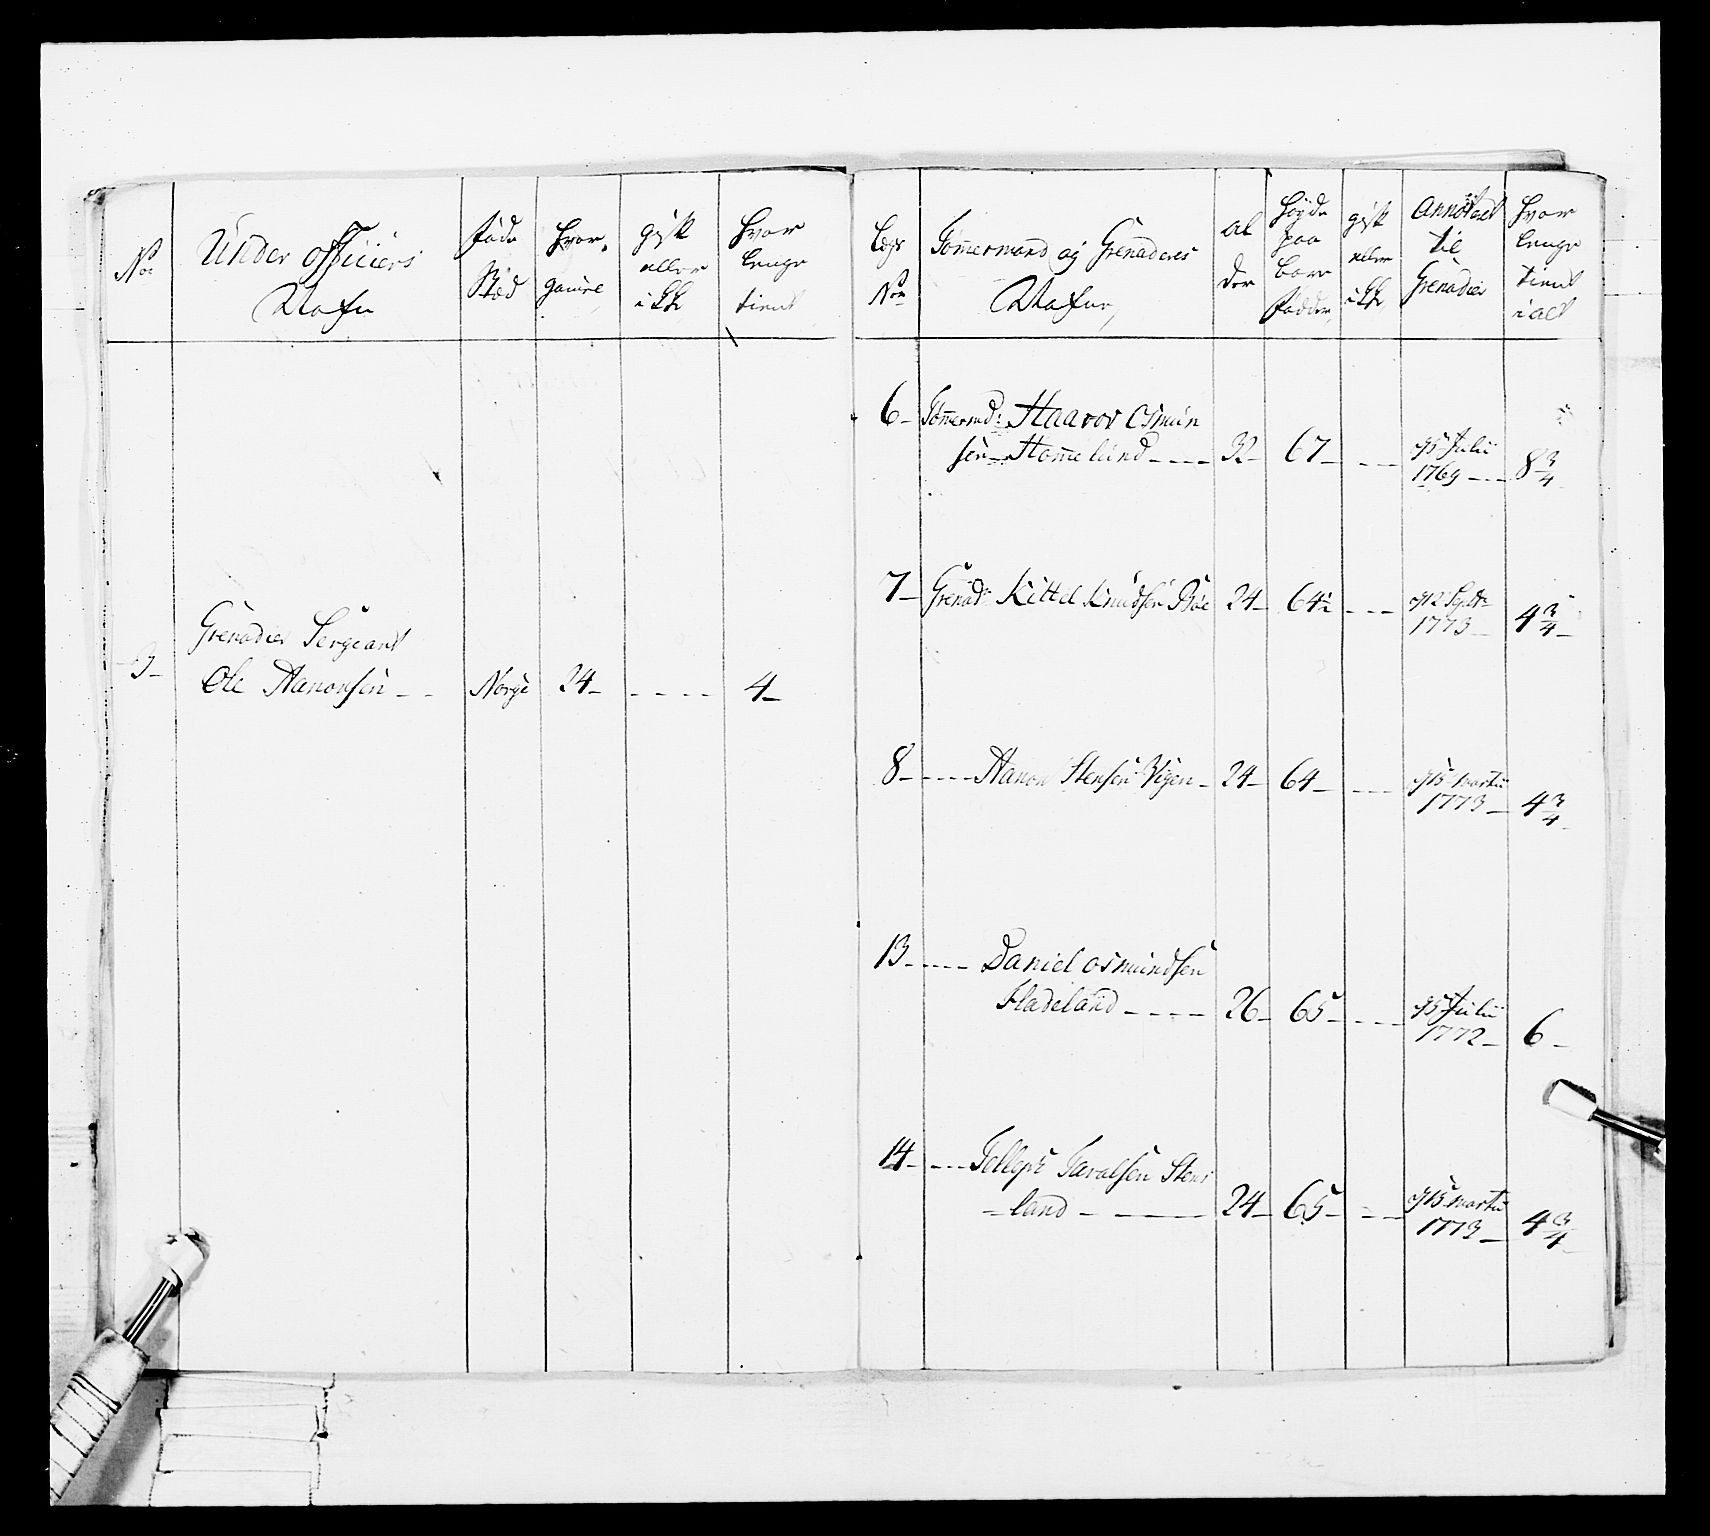 No
Under officiers
Nafn
føde
Stæd
hvor
gamle
gift
eller
ikke
hvor
lenge
tient
3-
Grenadier Sergeant
Ole Aanonsen - -
Norge
24-
- - - -
4-
Legs
No
Tømermend og Grenaderes
Nafne,
al
der
høyde
paa
bare
fødder,
gift
eller
ikke
Annotert
til
Grenadier
hvor
lenge
tient
i alt
6- Tømermd: Haavor Osmun
sen Homelund - - - - 32- 67- - - - 5 Julii
1769 - - - 8 3/4
7- Grenad: Kittel Knudsen Bøe 24- 64½ - - - 12 Sept:
1773 - 4 3/4 -
8- - - - - Aanon Stensen Vigen - 24- 64- - - - 15 Martii
1773 - 4 3/4
13- - - - - Daniel Osmundsen
Hadeland - - - - 26- 65- - - - 5 Julii
1772 - 6 -
14- - - - Tollef Taralsen Stens
= land - - - - 24- 65- - - - 15 Martii
1773 - 4 3/4